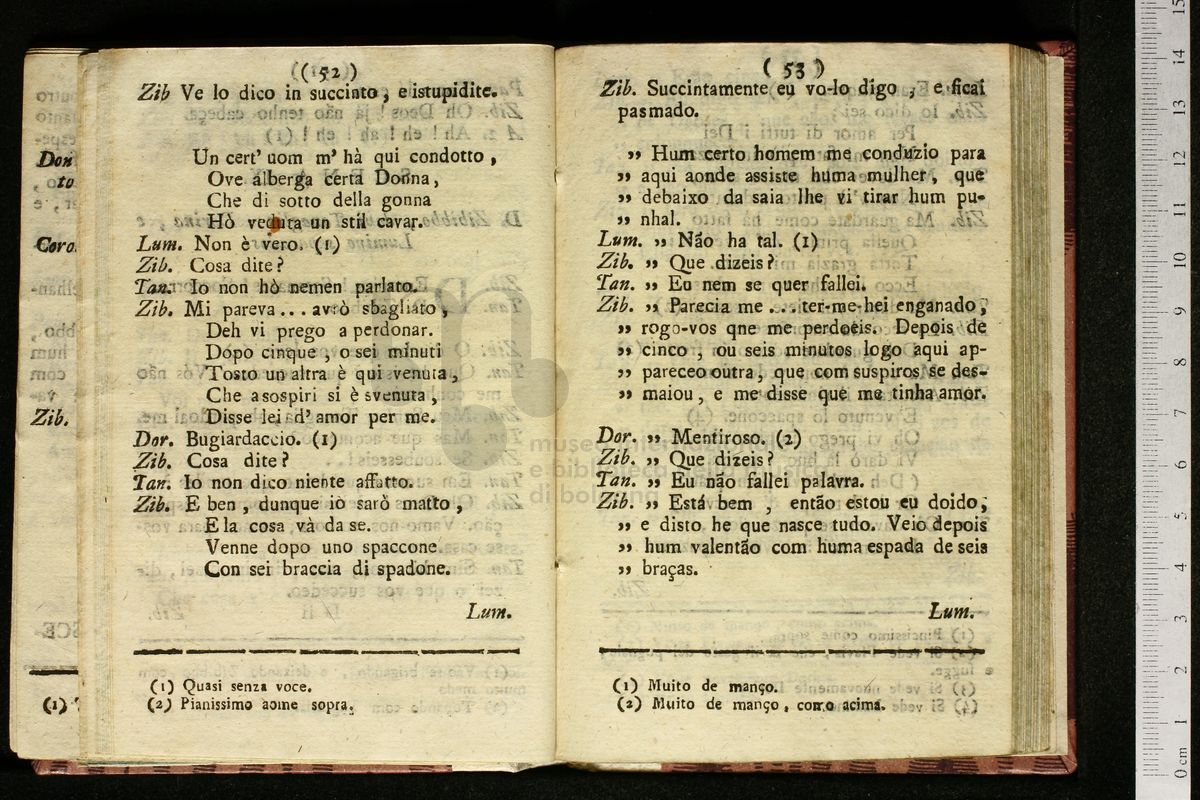 (52)
Zib Ve lo dico in succinto, e istupidite.
Un cert' uom m' hà qui condotto,
Ove alberga certa Donna,
Che di sotto della gonna
Hò veduta un stil cavar.
Lum. Non è vero. (1)
Zib. Cosa dite?
Tan. Io non hò nemen parlato.
Zib. Mi pareva... avrò sbagliato,
Deh vi prego a perdonar.
Dopo cinque, o sei minuti
Tosto un altra è qui venuta,
Che a sospiri si è svenuta,
Disse lei d' amor per me.
Dor. Bugiardaccio. (1)
Zib. Cosa dite?
Tan. Io non dico niente affatto.
Zib. E ben, dunque iò sarò matto,
E la cosa và da se.
Venne dopo uno spaccone
Con sei braccia di spadone.
Lum.
(1) Quasi senza voce.
(2) Pianissimo aome sopra.
Don
to
Coro.
Zib.
(1)
(53)
Zib. Succintamente eu vo-lo digo, e ficai
pasmado.
,, Hum certo homem me conduzio para
,, aqui aonde assiste huma mulher, que
,, debaixo da saia lhe vi tirar hum pu-
,, nhal.
Lum. ,, Não ha tal. (1)
Zib. ,, Que dizeis?
Tan. ,, Eu nem se quer fallei.
Zib. ,, Parecia me... ter-me-hei enganado;
,, rogo-vos qne me perdoeis. Depois de
,, cinco, ou seis minutos logo aqui ap-
,, pareceo outra, que com suspiros se des-
,, maiou, e me disse que me tinha amor.
Dor. ,, Mentiroso. (2)
Zib. ,, Que dizeis?
Tan. ,, Eu não fallei palavra.
Zib. ,, Está bem, então estou eu doido;
,, e disto he que nasce tudo. Veio depois
,, hum valentão com huma espada de seis
,, braças.
Lum.
(1) Muito de manço.
(2) Muito de manço, como acima.
0 cm 1 2 3 4 5 6 7 8 9 10 11 12 13 14 15